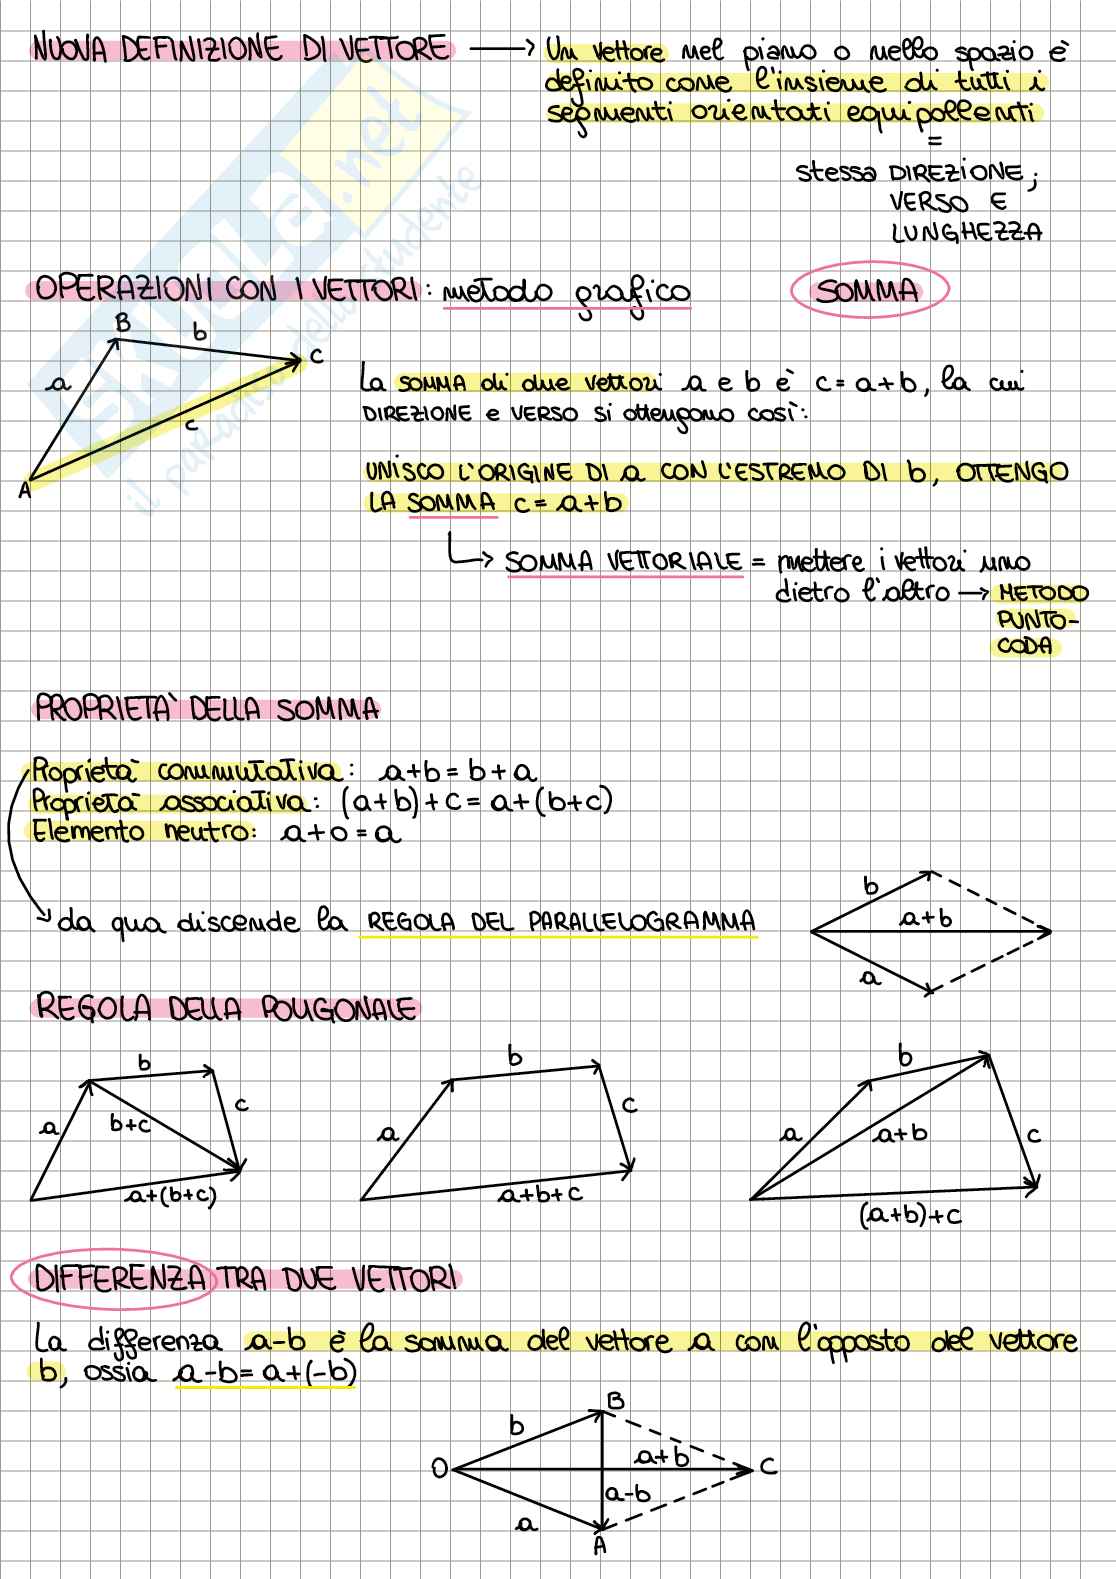 NUOVA DEFINIZIONE DI VETTORE → Un vettore nel piano o nello spazio è
definito come l'insieme di tutti i
segmenti orientati equipollenti
=
stessa DIREZIONE,
VERSO E
LUNGHEZZA
OPERAZIONI CON I VETTORI: metodo grafico SOMMA
B
b
C
a
c
A
La somma di due vettori a e b è c=a+b, la cui
DIREZIONE e VERSO si ottengono così:
UNISCO L'ORIGINE DI a CON L'ESTREMO DI b, OTTENGO
LA SOMMA c=a+b
→ SOMMA VETTORIALE = mettere i vettori uno
dietro l'altro → METODO
PUNTO-
CODA
PROPRIETÀ DELLA SOMMA
Proprietà commutativa: a+b=b+a
Proprietà associativa: (a+b)+c=a+(b+c)
Elemento neutro: a+0=a
→ da qua discende la REGOLA DEL PARALLELOGRAMMA
b
a+b
a
REGOLA DELLA POLIGONALE
b
a
b+c
c
a+(b+c)
b
a
c
a+b+c
b
a
a+b
c
(a+b)+c
DIFFERENZA TRA DUE VETTORI
La differenza a-b è la somma del vettore a con l'opposto del vettore
b, ossia a-b=a+(-b)
B
b
O
a+b
C
a-b
a
A
skuola.net
il paradiso dello studente